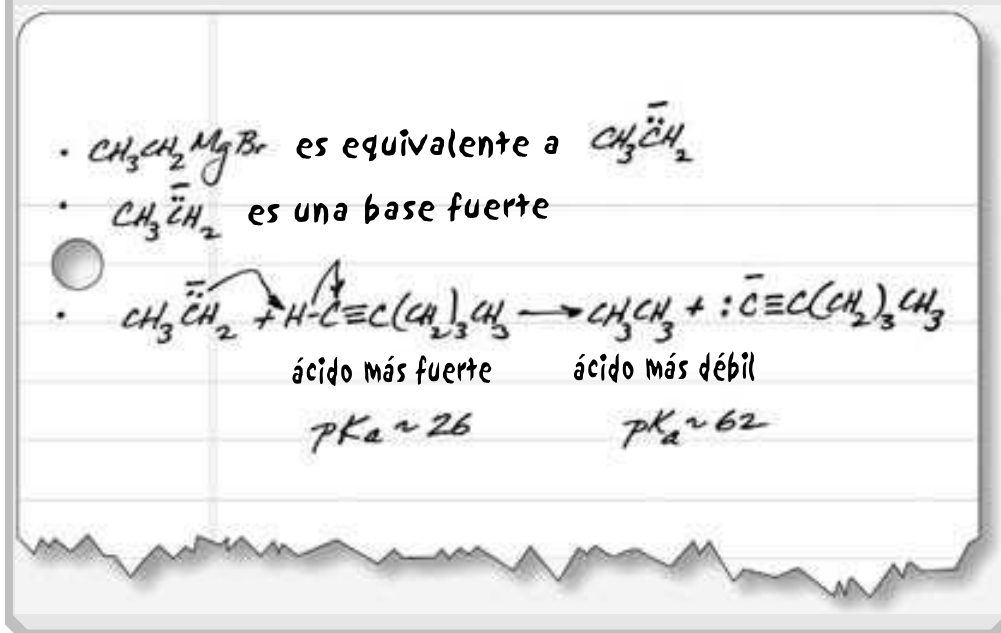 · CH₃CH₂MgBr es equivalente a CH₃C̈̄H₂
· CH₃C̈̄H₂ es una base fuerte
· CH₃C̈̄H₂ + H-C≡C(CH₂)₃CH₃ → CH₃CH₃ + :C̄≡C(CH₂)₃CH₃
ácido más fuerte ácido más débil
pKₐ ~ 26 pKₐ ~ 62